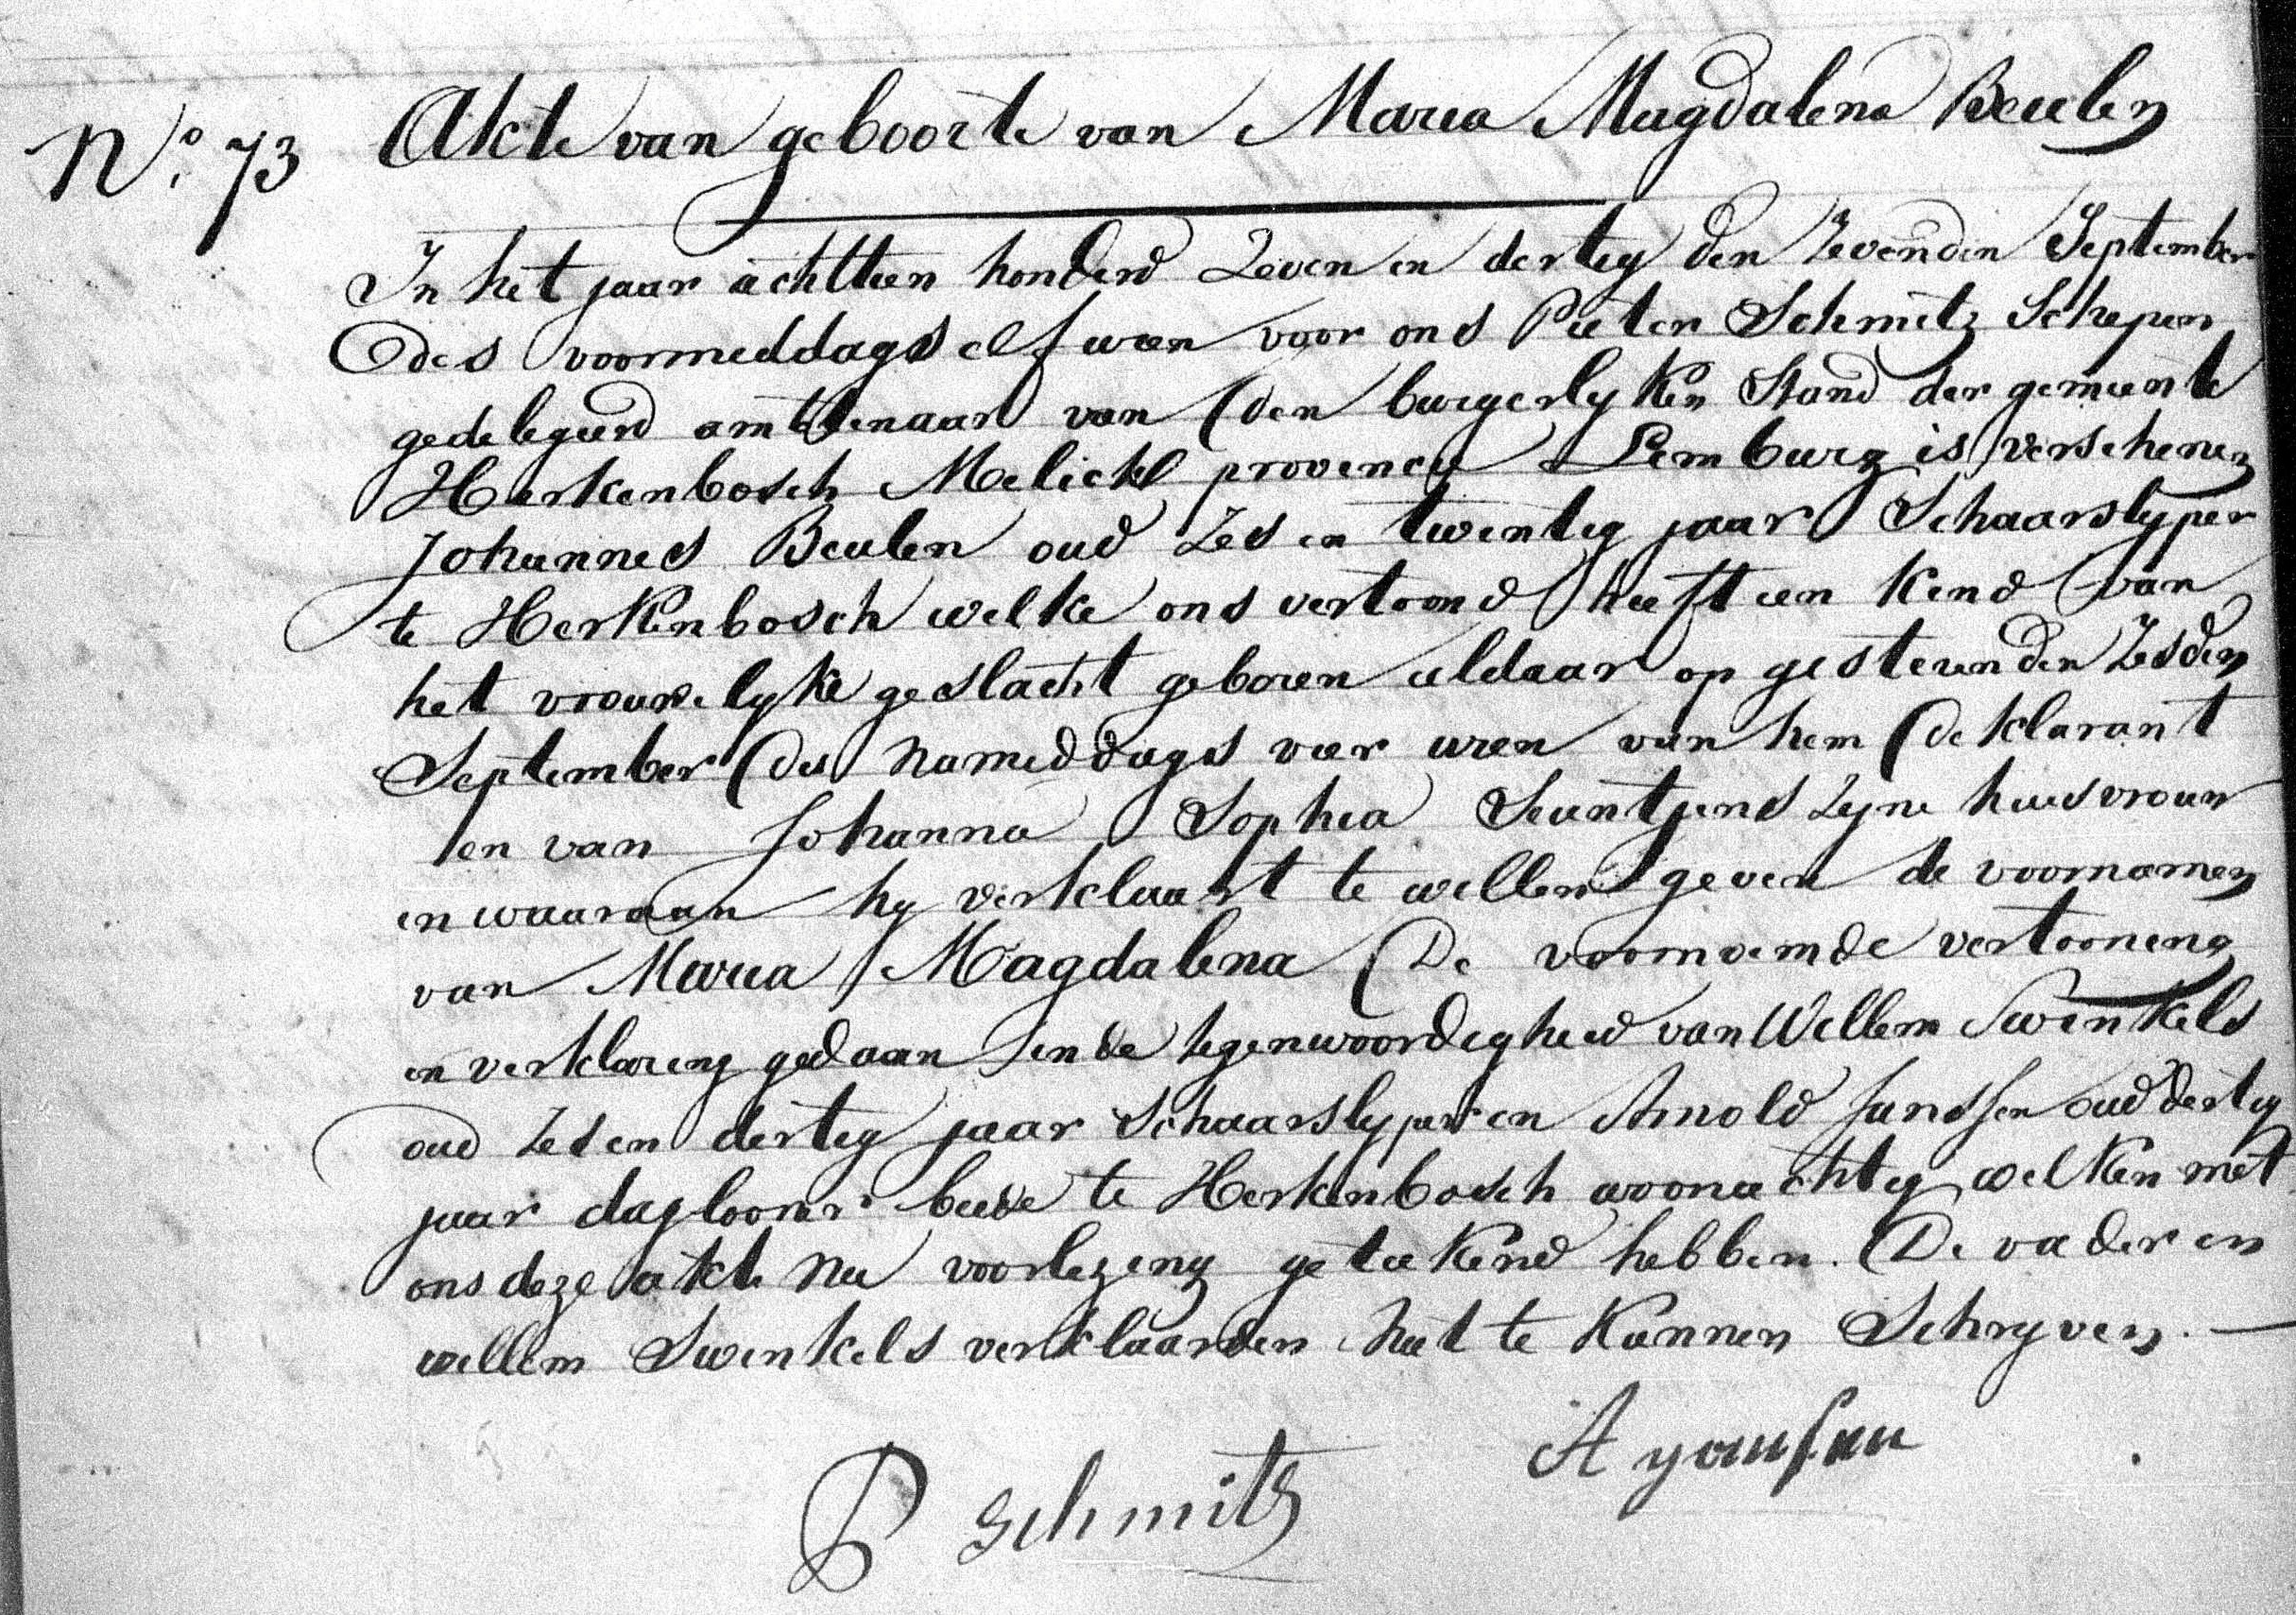 N.º 73 Akte van geboorte van Maria Magdalena Beulen
In het jaar achttien honderd Zeven en dertig den Zevenden September
des voormiddags elf uren voor ons Pieter Schmitz Schepen
gedelegeerd amtenaar van den burgerlyken Stand der gemeente
Herkenbosch Melick provencie Limburg is verschenen
Johannes Beulen oud Zes en twentig jaar Schaarslyper
te Herkenbosch welke ons vertoond heeft een Kend van
het vrouwelyke geslacht geboren aldaar op gisteren den Zesden
September des Namiddags vier uren van hem deklarant
en van Johanna Sophia Seuntjens Zyne huisvrouw
en waaraan hy verklaart te willen geven de voornamen
van Maria Magdalena De voornoemde vertooning
en verklaring gedaan in de tegenwoordigheid van Willem Swinkels
oud Zes en dertig jaar Schaarslyper en Arnold Janssen oud dertig
jaar daglooner beide te Herkenbosch woonachtig welken met
ons deze akte Na voorlezing geteekend hebben. De vader en
willem Swinkels verklaarden Niet te Konnen Schryven. —
A yansen
P Schmitz